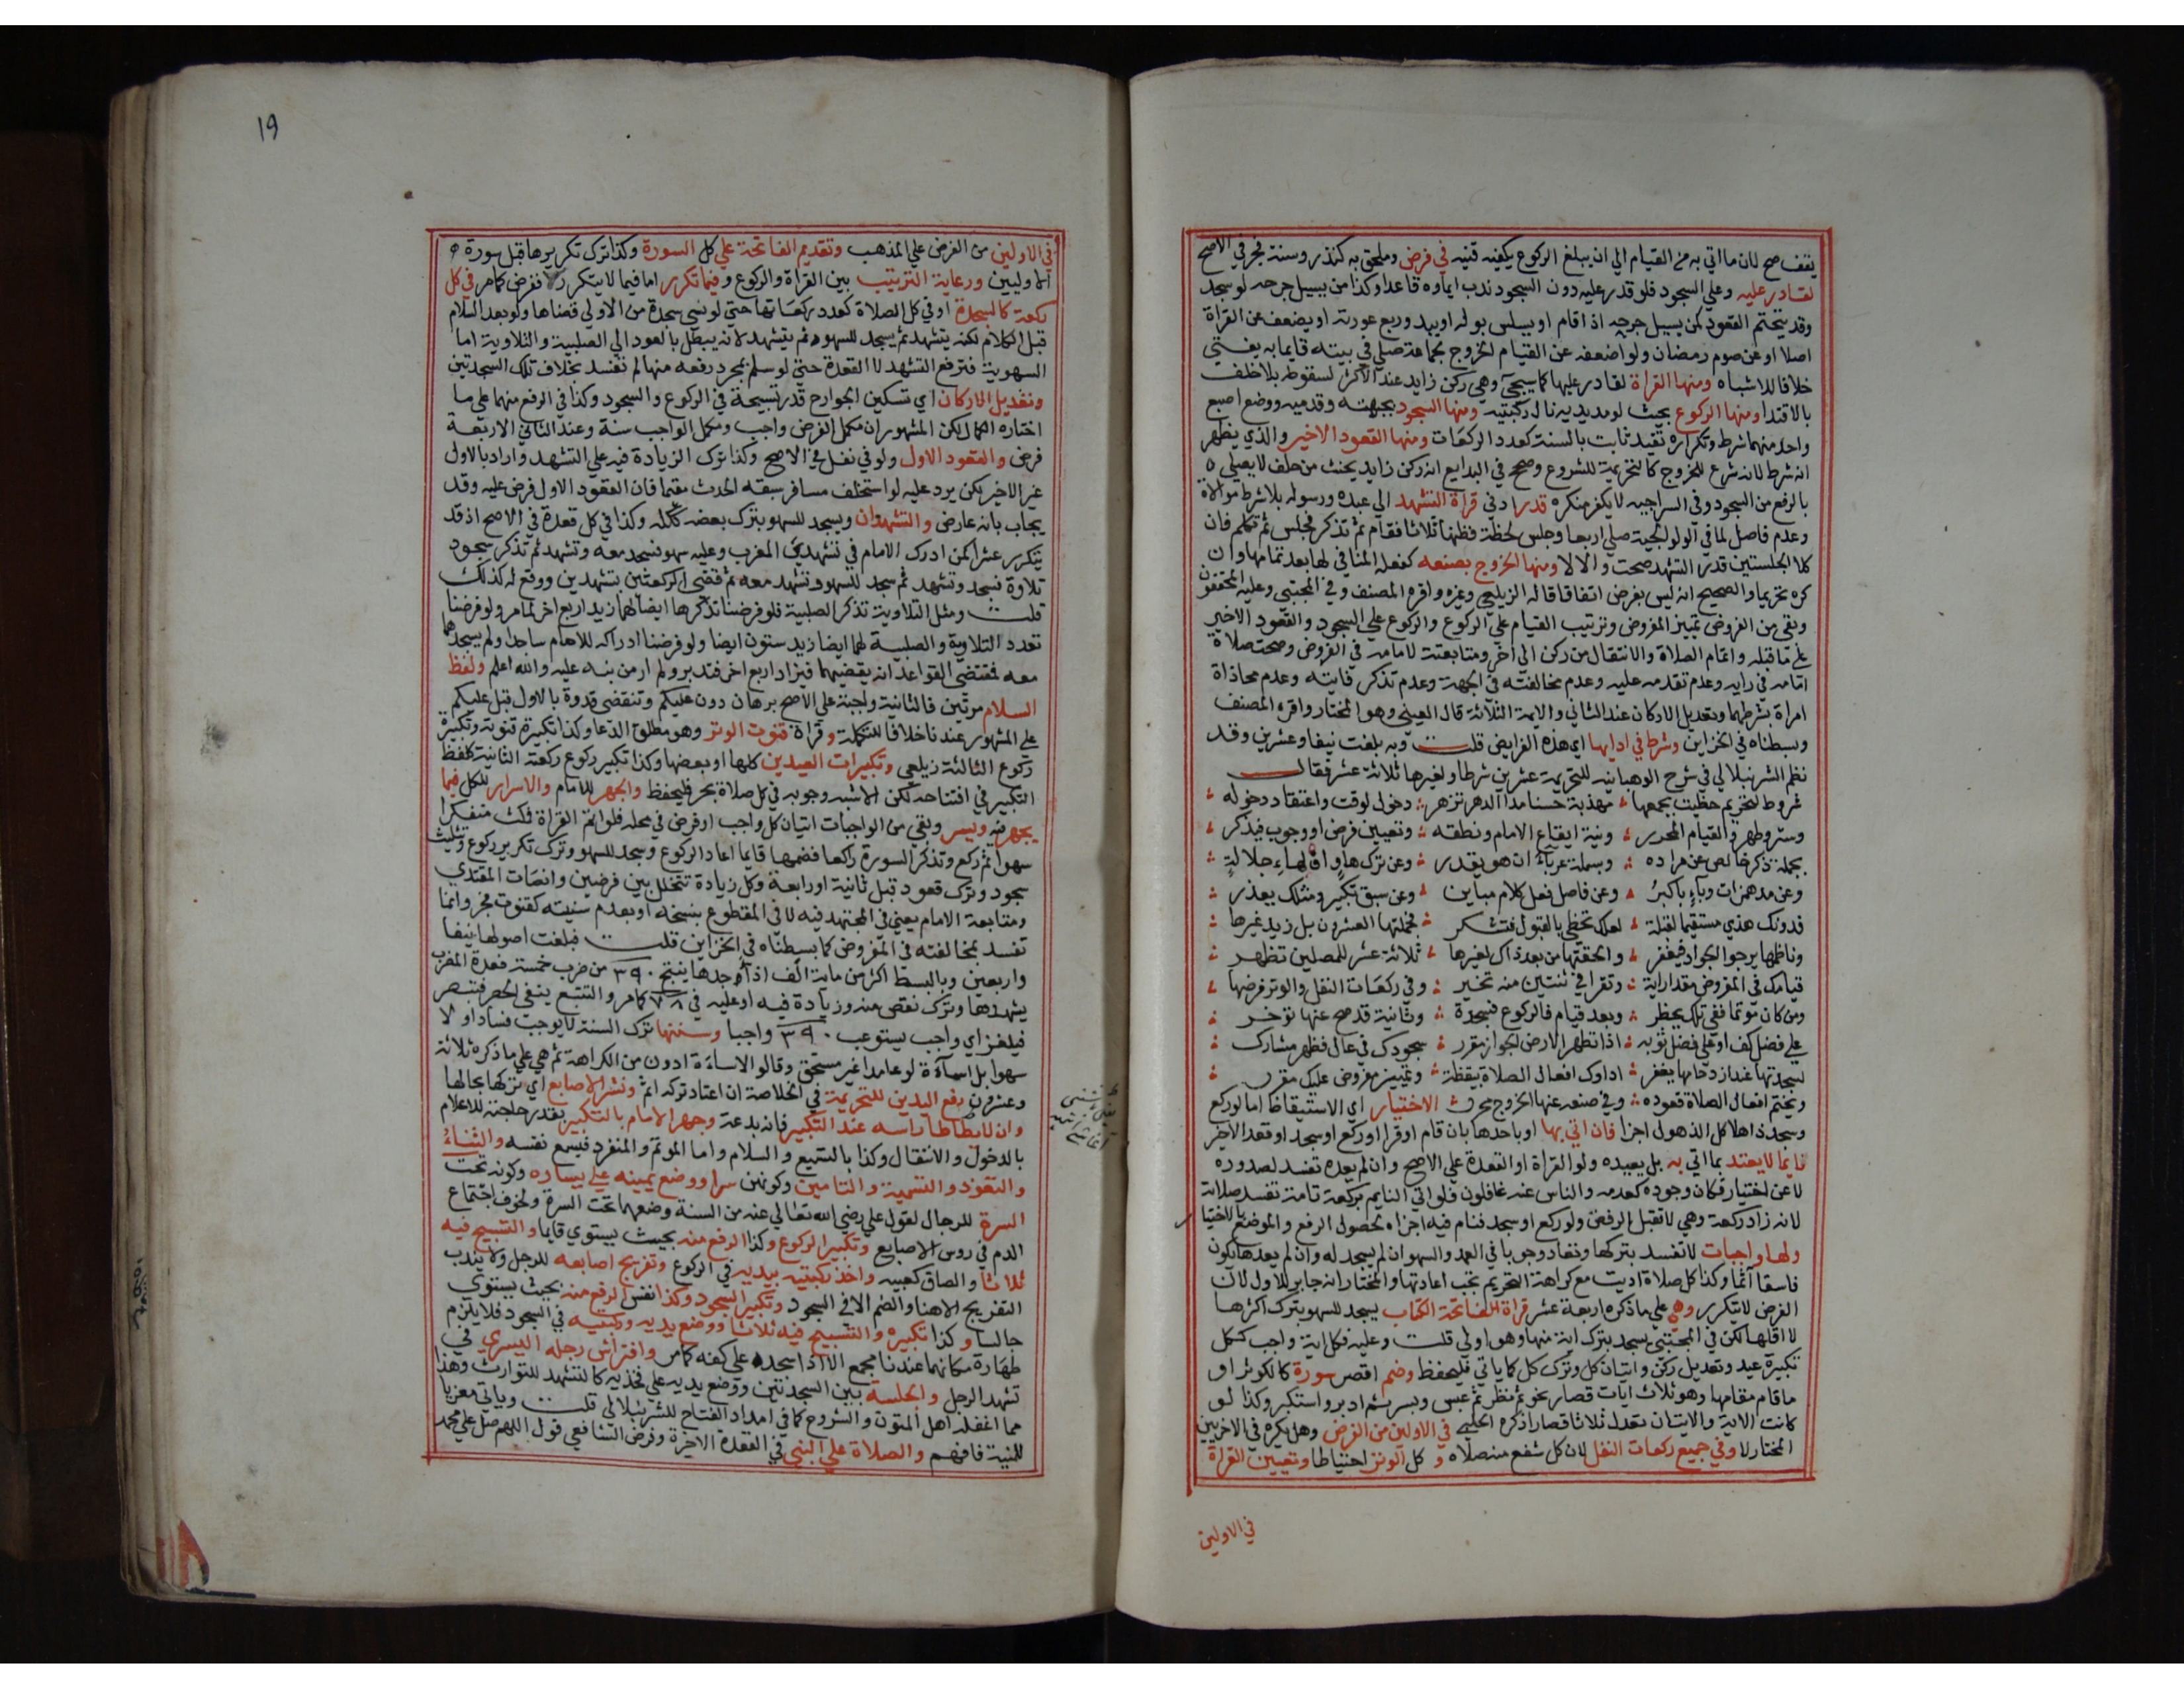 يقف صح لان ما اتي به من القيام الي ان يبلغ الركوع يكفيه قنيه في فرض وملحق به كنذر وسنة فجر في الاصح
لقادر عليه وعلي السجود فلو قدر عليه دون السجود ندب ايماوه قاعدا وكذا من يسيل جرحه لو سجد
وقد يتحتم القعود كمن يسيل جرحه اذا قام او يسلس بوله او يبدو ربع عورته او يضعف عن القراة
اصلا او عن صوم رمضان ولو اضعفه عن القيام الخروج لجماعة صلي في بيته قايما به يفتي
خلافا للاشباه ومنها القراة لقادر عليها كما سيجئ وهي ركن زايد عند الاكثر لسقوطه بلا خلف
بالاقتدا ومنها الركوع بحيث لو مد يديه نال ركبتيه ومنها السجود بجبهته وقدميه ووضع اصبع
واحد منهما شرط وتكراره تعبد ثابت بالسنة كعدد الركعات ومنها القعود الاخير والذي يظهر
انه شرط لانه شرع للخروج كالتحريمة للشروع وصحح في البدايع انه ركن زايد يحنث من حلف لا يصلي ه
بالرفع من السجود وفي السراجيه لا يكفر منكره قدر ادني قراة التشهد الي عبده ورسوله بلا شرط موالاة
وعدم فاصل لما في الولوالجية صلي اربعا وجلس لحظة فظنها ثلاثا فقام ثم تذكر فجلس ثم تكلم فان
كلا الجلستين قدر التشهد صحت والا لا ومنها الخروج بصنعه كفعله المنافي لها بعد تمامها وان
كره تحريما والصحيح انه ليس بفرض اتفاقا قاله الزيلعي وغيره واقره المصنف وفي المجتبي وعليه المحققون
وبقي من الفروض تمييز المفروض وترتيب القيام علي الركوع والركوع علي السجود والقعود الاخير
علي ما قبله واتمام الصلاة والانتقال من ركن الي اخر ومتابعته لامامه في الفروض وصحت صلاة
امامه في رايه وعدم تقدمه عليه وعدم مخالفته في الجهة وعدم تذكر فايته وعدم محاذاة
امراة بشرطهما وتعديل الاركان عند الثاني والايمة الثلاثة قال العيني وهو المختار واقره المصنف
وبسطناه في الخزاين وشرط في ادايها اي هذه الفرايض قلت وبه بلغت نيفا وعشرين وقد
نظم الشرنبلالي في شرح الوهبانيه للتحريمة عشرين شرطا ولغيرها ثلاثة عشر فقال
شروط لتحريم حظيت بجمعها مهذبة حسنا مدا الدهر تزهر دخول لوقت واعتقاد دخوله
وستر وطهر والقيام المحرر ونية ايقاع الامام ونطقه وتعيين فرض او وجوب فيذكر
بجملة ذكر خالص عن مراده وبسملة عرباء ان هو يقدر وعن ترك هاو اولهاء جلالةٍ
وعن مد همزات وباء باكبرُ وعن فاصل فعل كلام مباين وعن سبق تكبير ومثلك يعذر
فدونك هذي مستقيما لقبلة لعلك تحظي بالقبول فتشكر فجملتها العشرون بل زيد غيرها
وناظمها يرجو الجواد فيغفر والحقتها من بعد ذاك لغيرها ثلاثة عشر للمصلين تظهر
قيامك في المفروض مقدار اية وتقرا في ثنتين منه تخير وفي ركعات النفل والوتر فرضها
ومن كان موتما ففي تلك يحظر وبعد قيام فالركوع فسجدة وثانية قد صح عنها توخر
علي فضل كف او علي فضل ثوبه اذا تطهر الارض الجواز مقرر سجودك في عال فظهر مشارك
لسجدتها عند ازدحامها يغفر اداوك افعال الصلاة بيقظة وتمييز مفروض عليك مقرر
ويختم افعال الصلاة قعوده وفي صنعه عنها الخروج محرر الاختيار اي الاستيقاظ اما لو ركع
وسجد ذاهلا كل الذهول اجزا فان اتي بها او باحدها بان قام او قرا او ركع او سجد او قعد الاخير
نايما لا يعتد بما اتي به بل يعيده ولو القراة او القعدة علي الاصح وان لم يعده تفسد لصدوره
لا عن اختيار فكان وجوده كعدمه والناس عنه غافلون فلو اتي النايم بركعة تامة تفسد صلاته
لانه زاد ركعة وهي لا تقبل الرفض ولو ركع او سجد فنام فيه اجزاه لحصول الرفع والموضع بالاختيا
ولها واجبات لا تفسد بتركها وتعاد وجوبا في العمد والسهو ان لم يسجد له وان لم يعدها يكون
فاسقا آثما وكذا كل صلاة اديت مع كراهة التحريم تجب اعادتها والمختار انه جابر للاول لان
الفرض لا يتكرر وهي علي ما ذكره اربعة عشر قراة الفاتحة الكتاب يسجد للسهو بترك اكثرها
لا اقلها لكن في المجتبي يسجد بترك اية منها وهو اولي قلت وعليه فكل اية واجب ككل
تكبيرة عيد وتعديل ركن واتيان كل وترك كل كما ياتي فليحفظ وضم اقصر سورة كالكوثر او
ما قام مقامها وهو ثلاث ايات قصار نحو ثم نظر ثم عبس وبسر ثم ادبر واستكبر وكذا لو
كانت الاية والايتان تعدل ثلاثا قصارا ذكره الحلبي في الاولين من الفرض وهل يكره في الاخريين
المختار لا وفي جميع ركعات النفل لان كل شفع منه صلاه و كل الوتر احتياطا وتعيين القراة
في الاولين
19
في الاولين من الفرض علي المذهب وتقديم الفاتحة علي كل السورة وكذا ترك تكريرها قبل سورة ه
الاوليين ورعاية الترتيب بين القراة والركوع وفيما تكرر اما فيما لا يتكرر ففرض كما مر في كل
ركعة كالسجدة او في كل الصلاة كعدد ركعاتها حتي لو نسي سجدة من الاولي قضاها ولو بعد السلام
قبل الكلام لكنه يتشهد ثم يسجد للسهو ثم يتشهد لانه يبطل بالعود الي الصلبية والتلاوية اما
السهوية فترفع التشهد لا القعدة حتي لو سلم بمجرد رفعه منها لم تفسد بخلاف تلك السجدتين
وتعديل الاركان اي تسكين الجوارح قدر تسبيحة في الركوع والسجود وكذا في الرفع منهما علي ما
اختاره الكمال لكن المشهور ان مكمل الفرض واجب ومكمل الواجب سنة وعند الثاني الاربعة
فرض والقعود الاول ولو في نفل في الاصح وكذا ترك الزيادة فيه علي التشهد واراد بالاول
غير الاخير لكن يرد عليه لو استخلف مسافر سبقه الحدث مقيما فان القعود الاول فرض عليه وقد
يجاب بانه عارض والتشهدان ويسجد للسهو بترك بعضه ككله وكذا في كل قعدة في الاصح اذ قد
يتكرر عشرا كمن ادرك الامام في تشهدي المغرب وعليه سهو فسجد معه وتشهد ثم تذكر سجود
تلاوة فسجد وتشهد ثم سجد للسهو وتشهد معه ثم قضي الركعتين بتشهدين ووقع له كذلك
قلت ومثل التلاوية تذكر الصلبية فلو فرضنا تذكرها ايضا لهما زيد اربع اخر لما مر ولو فرضنا
تعدد التلاوية والصلبية لهما ايضا زيد ستون ايضا ولو فرضنا ادراكه للامام ساجدا ولم يسجدهما
معه فمقتضي القواعد انه يقضيهما فيزاد اربع اخر فتدبر ولم ار من نبه عليه والله اعلم ولفظ
السلام مرتين فالثانية واجبة علي الاصح برهان دون عليكم وتنقضي قدوة بالاول قبل عليكم
علي المشهور عندنا خلافا للتكملة وقراة قنوت الوتر وهو مطلق الدعا وكذا تكبيرة قنوته وتكبيرة
ركوع الثالثة زيلعي وتكبيرات العيدين كلها او بعضها وكذا تكبير ركوع ركعته الثانية كلفظ
التكبير في افتتاحه لكن الاشبه وجوبه في كل صلاة بحر فليحفظ والجهر للامام والاسرار للكل فيما
يجهر فيه ويسر وبقي من الواجبات اتيان كل واجب او فرض في محله فلو اتم القراة فمكث متفكرا
سهوا ثم ركع وتذكر السورة راكعا فضمها قايما اعاد الركوع وسجد للسهو وترك تكرير ركوع وتثليث
سجود وترك قعود قبل ثانية او رابعة وكل زيادة تتخلل بين فرضين وانصات المقتدي
ومتابعة الامام يعني في المجتهد فيه لا في المقطوع بنسخه او بعدم سنيته كقنوت فجر وانما
تفسد بمخالفته في المفروض كما بسطناه في الخزاين قلت فبلغت اصولها نيفا
واربعين وبالبسط اكثر من ماية الف اذ احدها ينتج ٣٩٠ من ضرب خمسة قعدة المغرب
بتشهدها وترك نقص منه وزيادة فيه او عليه في ٧٨ كما مر والتتبع ينفي الحصر فتبصر
فيلغز اي واجب يستوعب ٣٩٠ واجبا وسننها ترك السنة لا يوجب فسادا ولا
سهوا بل اسآءة لو عامدا غير مستخق وقالوا الاساءة ادون من الكراهة ثم هي علي ما ذكره ثلاثة
وعشرون رفع اليدين للتحريمة في الخلاصة ان اعتاد تركه اثم ونشر الاصابع اي تركها بحالها
وان لا يطاطا راسه عند التكبير فانه بدعة وجهر الامام بالتكبير بقدر حاجته للاعلام
بالدخول والانتقال وكذا بالتسميع والسلام واما الموتم والمنفرد فيسمع نفسه والثناء
والتعوذ والتسمية والتامين وكونهن سرا ووضع يمينه علي يساره وكونه تحت
السرة للرجال لقول علي رضي الله تعالي عنه من السنة وضعهما تحت السرة ولخوف اجتماع
الدم في روس الاصابع وتكبير الركوع وكذا الرفع منه بحيث يستوي قايما والتسبيح فيه
ثلاثا والصاق كعبيه واخذ ركبتيه بيديه في الركوع وتفريج اصابعه للرجل ولا يندب
التفريج الا هنا والضم الا في السجود وتكبير السجود وكذا نفس الرفع منه بحيث يستوي
جالسا وكذا تكبيره والتسبيح فيه ثلاثا ووضع يديه وركبتيه في السجود فلا يلزم
طهارة مكانهما عندنا مجمع الا اذا سجد علي كفه كما مر وافتراش رجله اليسري في
تشهد الرجل والجلسة بين السجدتين ووضع يديه علي فخذيه كالتشهد للتوارث وهذا
مما اغفله اهل المتون والشروح كما في امداد الفتاح للشرنبلالي قلت وياتي معزيا
للمنية فافهم والصلاة علي النبي في القعدة الاخيرة وفرض الشافعي قول اللهم صل علي محمد